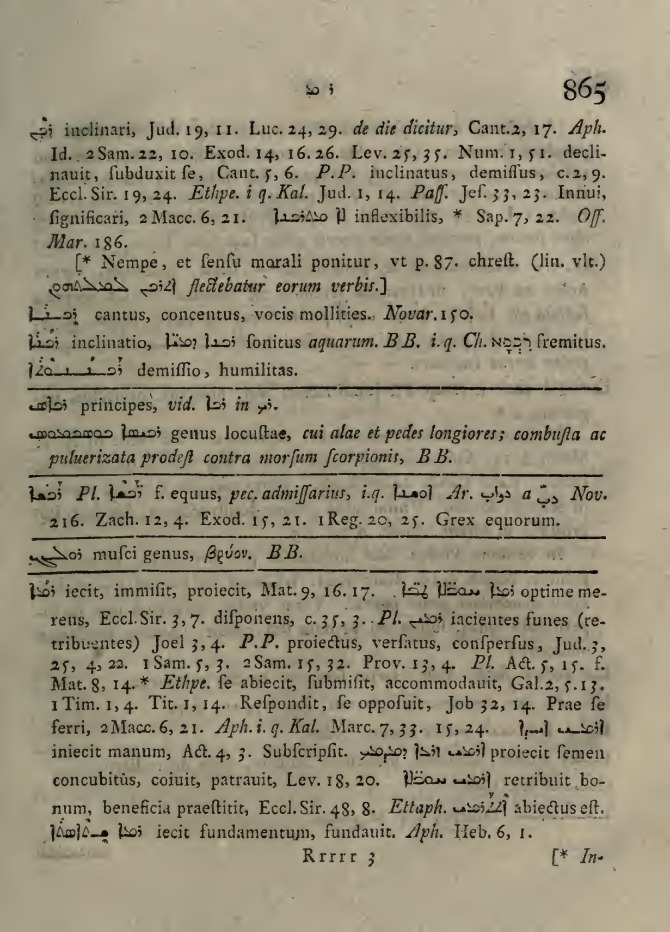 865
inclinari, Jud. 19, 11. Luc. 24, 29. de die dicitur, Cant. 2, 17. Aph.
Id. 2 Sam. 22, 10. Exod. 14, 16. 26. Lev. 25, 35. Num. 1, 51. decli-
nauit, ſubduxit ſe, Cant. 5, 6. P. P. inclinatus, demiſſus, c. 2, 9.
Eccl. Sir. 19, 24. Ethpe. i q. Kal. Jud. 1, 14. Paſſ. Jeſ. 33, 23. Innui,
ſignificari, 2 Macc. 6, 21. ܠܐ inflexibilis, * Sap. 7, 22. Off.
Mar. 186.
[* Nempe, et ſenſu morali ponitur, vt p. 87. chreſt. (lin. vlt.)
flectebatur eorum verbis.]
cantus, concentus, vocis mollities. Novar. 150.
inclinatio, ſonitus aquarum. BB. i. q. Ch. fremitus.
demiſſio, humilitas.
principes, vid. in
genus locuſtae, cui alae et pedes longiores; combuſta ac
puluerizata prodeſt contra morſum ſcorpionis, BB.
ܪܡܟܐ Pl. ܪܡܟܐ f. equus, pec. admiſſarius, i. q. Ar. دواب a دبّ Nov.
216. Zach. 12, 4. Exod. 15, 21. 1 Reg. 20, 25. Grex equorum.
muſci genus, βρύον. BB.
ܪܡܐ iecit, immiſit, proiecit, Mat. 9, 16. 17. optime me-
rens, Eccl. Sir. 3, 7. diſponens, c. 35, 3. Pl. iacientes funes (re-
tribuentes) Joel 3, 4. P. P. proiectus, verſatus, conſperſus, Jud. 3,
25, 4, 22. 1 Sam. 5, 3. 2 Sam. 15, 32. Prov. 13, 4. Pl. Act. 5, 15. f.
Mat. 8, 14. * Ethpe. ſe abiecit, ſubmiſit, accommodauit, Gal. 2, 5. 13.
1 Tim. 1, 4. Tit. 1, 14. Reſpondit, ſe oppoſuit, Job 32, 14. Prae ſe
ferri, 2 Macc. 6, 21. Aph. i. q. Kal. Marc. 7, 33. 15, 24. ܐܪܡܝ ܐܝܕܐ
iniecit manum, Act. 4, 3. Subſcripſit. proiecit ſemen
concubitûs, coiuit, patrauit, Lev. 18, 20. retribuit bo-
num, beneficia praeſtitit, Eccl. Sir. 48, 8. Ettaph. ܐܬܬܪܡܝ abiectus eſt.
ܪܡܐ ܫܬܐܣܬܐ iecit fundamentum, fundauit. Aph. Heb. 6, 1.
Rrrrr 3 [* In-